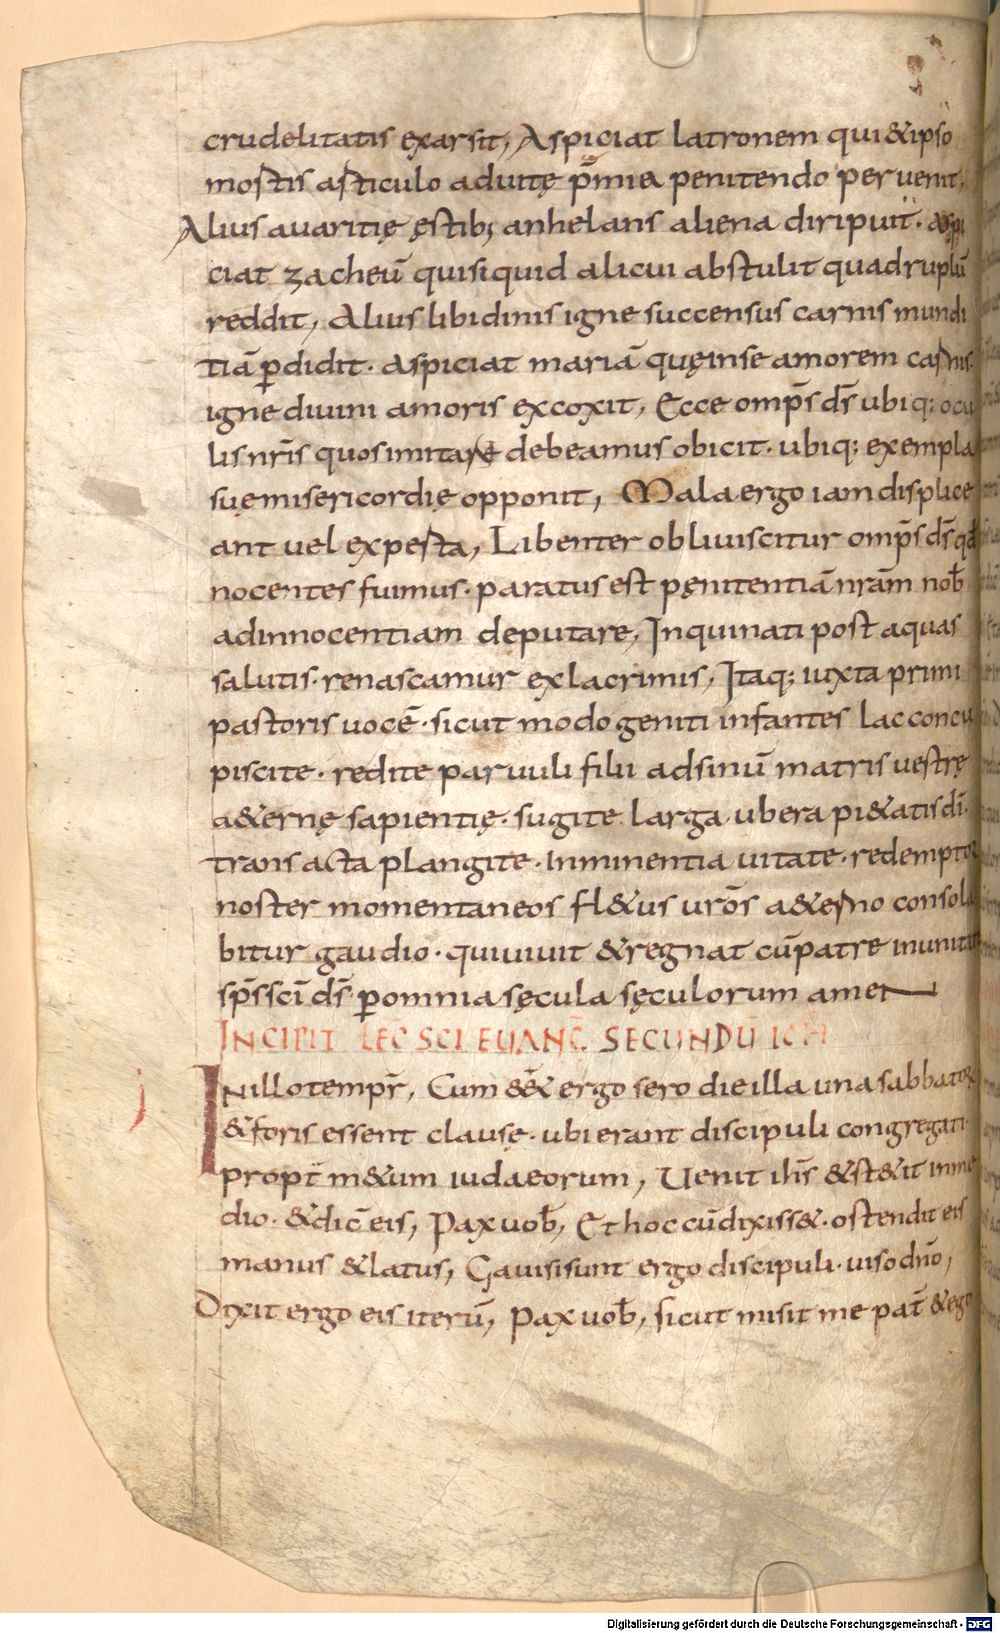 crudelitatis exarsit, Aspiciat latronem qui &ipso
mortis articulo aduitę p̄mia penitendo peruenit,
Alius auaritię ęstib; anhelans aliena diripuit. aspi
ciat zacheū quisiquid alicui abstulit quadruplū
reddit, Alius libidinis igne succensus carnis mundi
tiā ꝑdidit. aspiciat mariā quęinse amorem carnis
igne diuini amoris excoxit, Ecce omp̄s d̄s ubiq; ocu
lis nr̄is quos imitare debeamus obicit. ubiq; exempla
suę misericordię opponit, Mala ergo iam displice
ant uel experta, Libenter obliuiscitur omp̄s d̄s qđ
nocentes fuimus. paratus est pęnitentiā nrām nob̄
adinnocentiam deputare, Inquinati post aquas
salutis. renascamur exlacrimis, Itaq; iuxta primi
pastoris uocē. sicut modo geniti infantes lac concu
piscite. redite paruuli filii adsinū matris uestrę
a&ernę sapientię. sugite larga ubera pi&atis dī.
transacta plangite. inminentia uitate. redemptor
noster momentaneos fl&us urōs a&erno consola
bitur gaudio. quiuiuit &regnat cū patre inunitate
sp̄s sc̄i d̄s ꝑomnia sęcula sęculorum amen
INCIPIT LEC̄ SCĪ EUANḠ. SECUNDŪ IOH
INillo tempr̄, Cum ēē& ergo sero die illa una sabbatorū
&foris essent clausę. ubi erant discipuli congregati.
propt̄ m&um iudaeorum, Uenit ih̄s &st&it inme
dio. &dic̄ eis, Pax uob̄, Et hoc cū dixiss&. ostendit eis
manus &latus, Gauisi sunt ergo discipuli. uiso dn̄o,
Dixit ergo eis iterū, Pax uob̄, sicut misit me pat̄ &ego
Digitalisierung gefördert durch die Deutsche Forschungsgemeinschaft - DFG